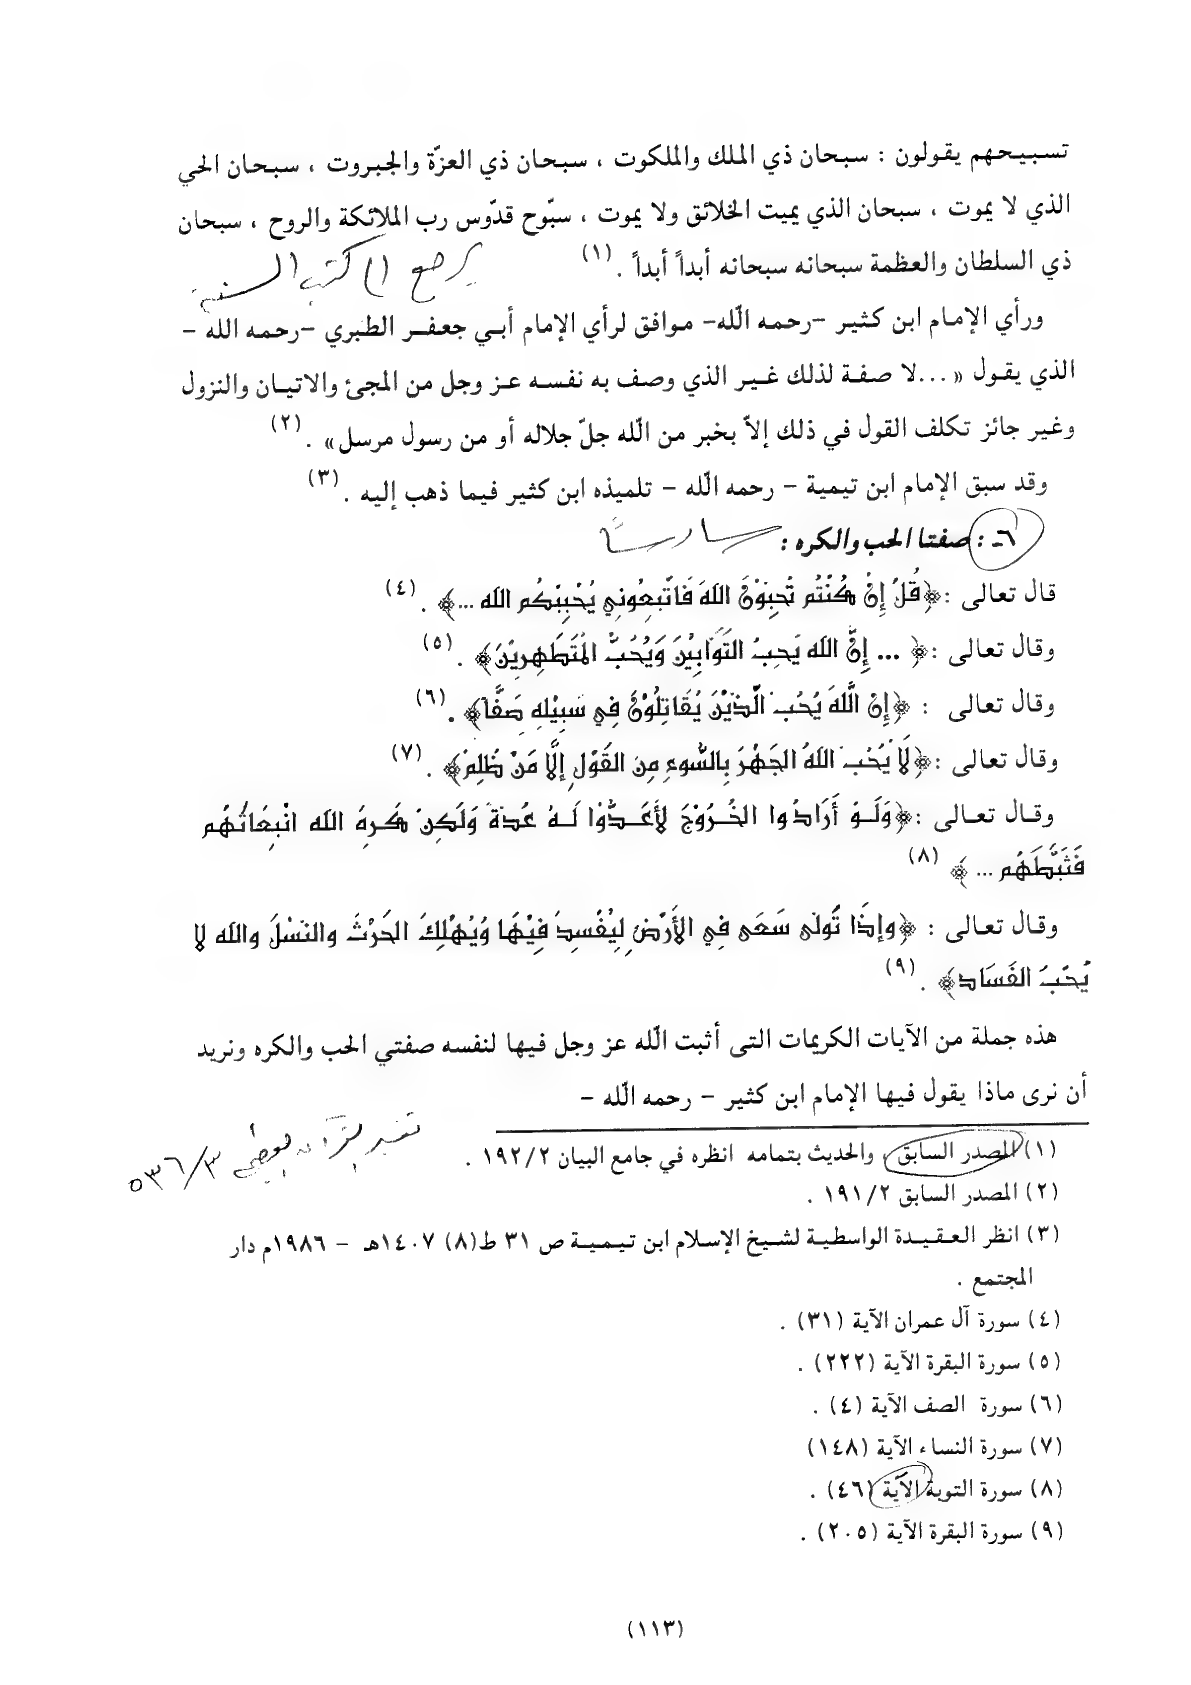 تسبيحهم يقولون : سبحان ذي الملك والملكوت ، سبحان ذي العزّة والجبروت ، سبحان الحي
الذي لا يموت ، سبحان الذي يميت الخلائق ولا يموت ، سبّوح قدّوس رب الملائكة والروح ، سبحان
ذي السلطان والعظمة سبحانه سبحانه أبداً أبداً . (١)
يرجع إلى كتب السنة
ورأي الإمام ابن كثير -رحمه الله- موافق لرأي الإمام أبي جعفر الطبري -رحمه الله -
الذي يقول «...لا صفة لذلك غير الذي وصف به نفسه عز وجل من المجئ والاتيان والنزول
وغير جائز تكلف القول في ذلك إلاّ بخبر من الله جلّ جلاله أو من رسول مرسل» . (٢)
وقد سبق الإمام ابن تيمية - رحمه الله - تلميذه ابن كثير فيما ذهب إليه . (٣)
٦- : صفتا الحب والكره :
قال تعالى :﴿قُلْ إِنْ كُنْتُم تُحِبَوْنَ اللهَ فَاتَّبِعُونِي يُحْبِبْكُم الله ...﴾ . (٤)
وقال تعالى :﴿ ... إِنَّ الله يَحِبُ التَوَّابِيْنَ وَيُحُبُّ المُتَطَهِرِيْنَ﴾ . (٥)
وقال تعالى : ﴿إِنْ اللَّهَ يُحُبَ الَّذَيْنَ يُقَاتِلُوْنَ فِي سَبِيْلِهِ صَفَّاً﴾ . (٦)
وقال تعالى :﴿لَا يُحُبَ اللهُ الجَهْرَ بِالسُّوءِ مِن القَوْلِ إِلَّا مَنْ ظُلِمَ﴾ . (٧)
وقال تعالى :﴿وَلَوْ أَرَادُوا الخُرُوْجَ لأَعَدُّوْا لَهُ عُدَةً وَلَكِنْ كَرِهَ الله انْبِعَاثُهُم
فَثَبَّطَهُم ... ﴾ (٨)
وقال تعالى : ﴿وإِذَا تُولى سَعَى فِي الأَرْضِ لِيُفْسِدَ فِيْهَا وَيُهْلِكَ الحَرْثَ والنَسْلَ والله لا
يُحّبُ الفَسَاد﴾ . (٩)
هذه جملة من الآيات الكريمات التى أثبت الله عز وجل فيها لنفسه صفتي الحب والكره ونريد
أن نرى ماذا يقول فيها الإمام ابن كثير - رحمه الله -
٥٣٦/٣
(١) المصدر السابق ، والحديث بتمامه انظره في جامع البيان ١٩٢/٢ .
(٢) المصدر السابق ١٩١/٢ .
(٣) انظر العقيدة الواسطية لشيخ الإسلام ابن تيمية ص ٣١ ط(٨) ١٤٠٧هـ - ١٩٨٦م دار
المجتمع .
(٤) سورة آل عمران الآية (٣١) .
(٥) سورة البقرة الآية (٢٢٢) .
(٦) سورة الصف الآية (٤) .
(٧) سورة النساء الآية (١٤٨)
(٨) سورة التوبة الآية (٤٦) .
(٩) سورة البقرة الآية (٢٠٥) .
(١١٣)